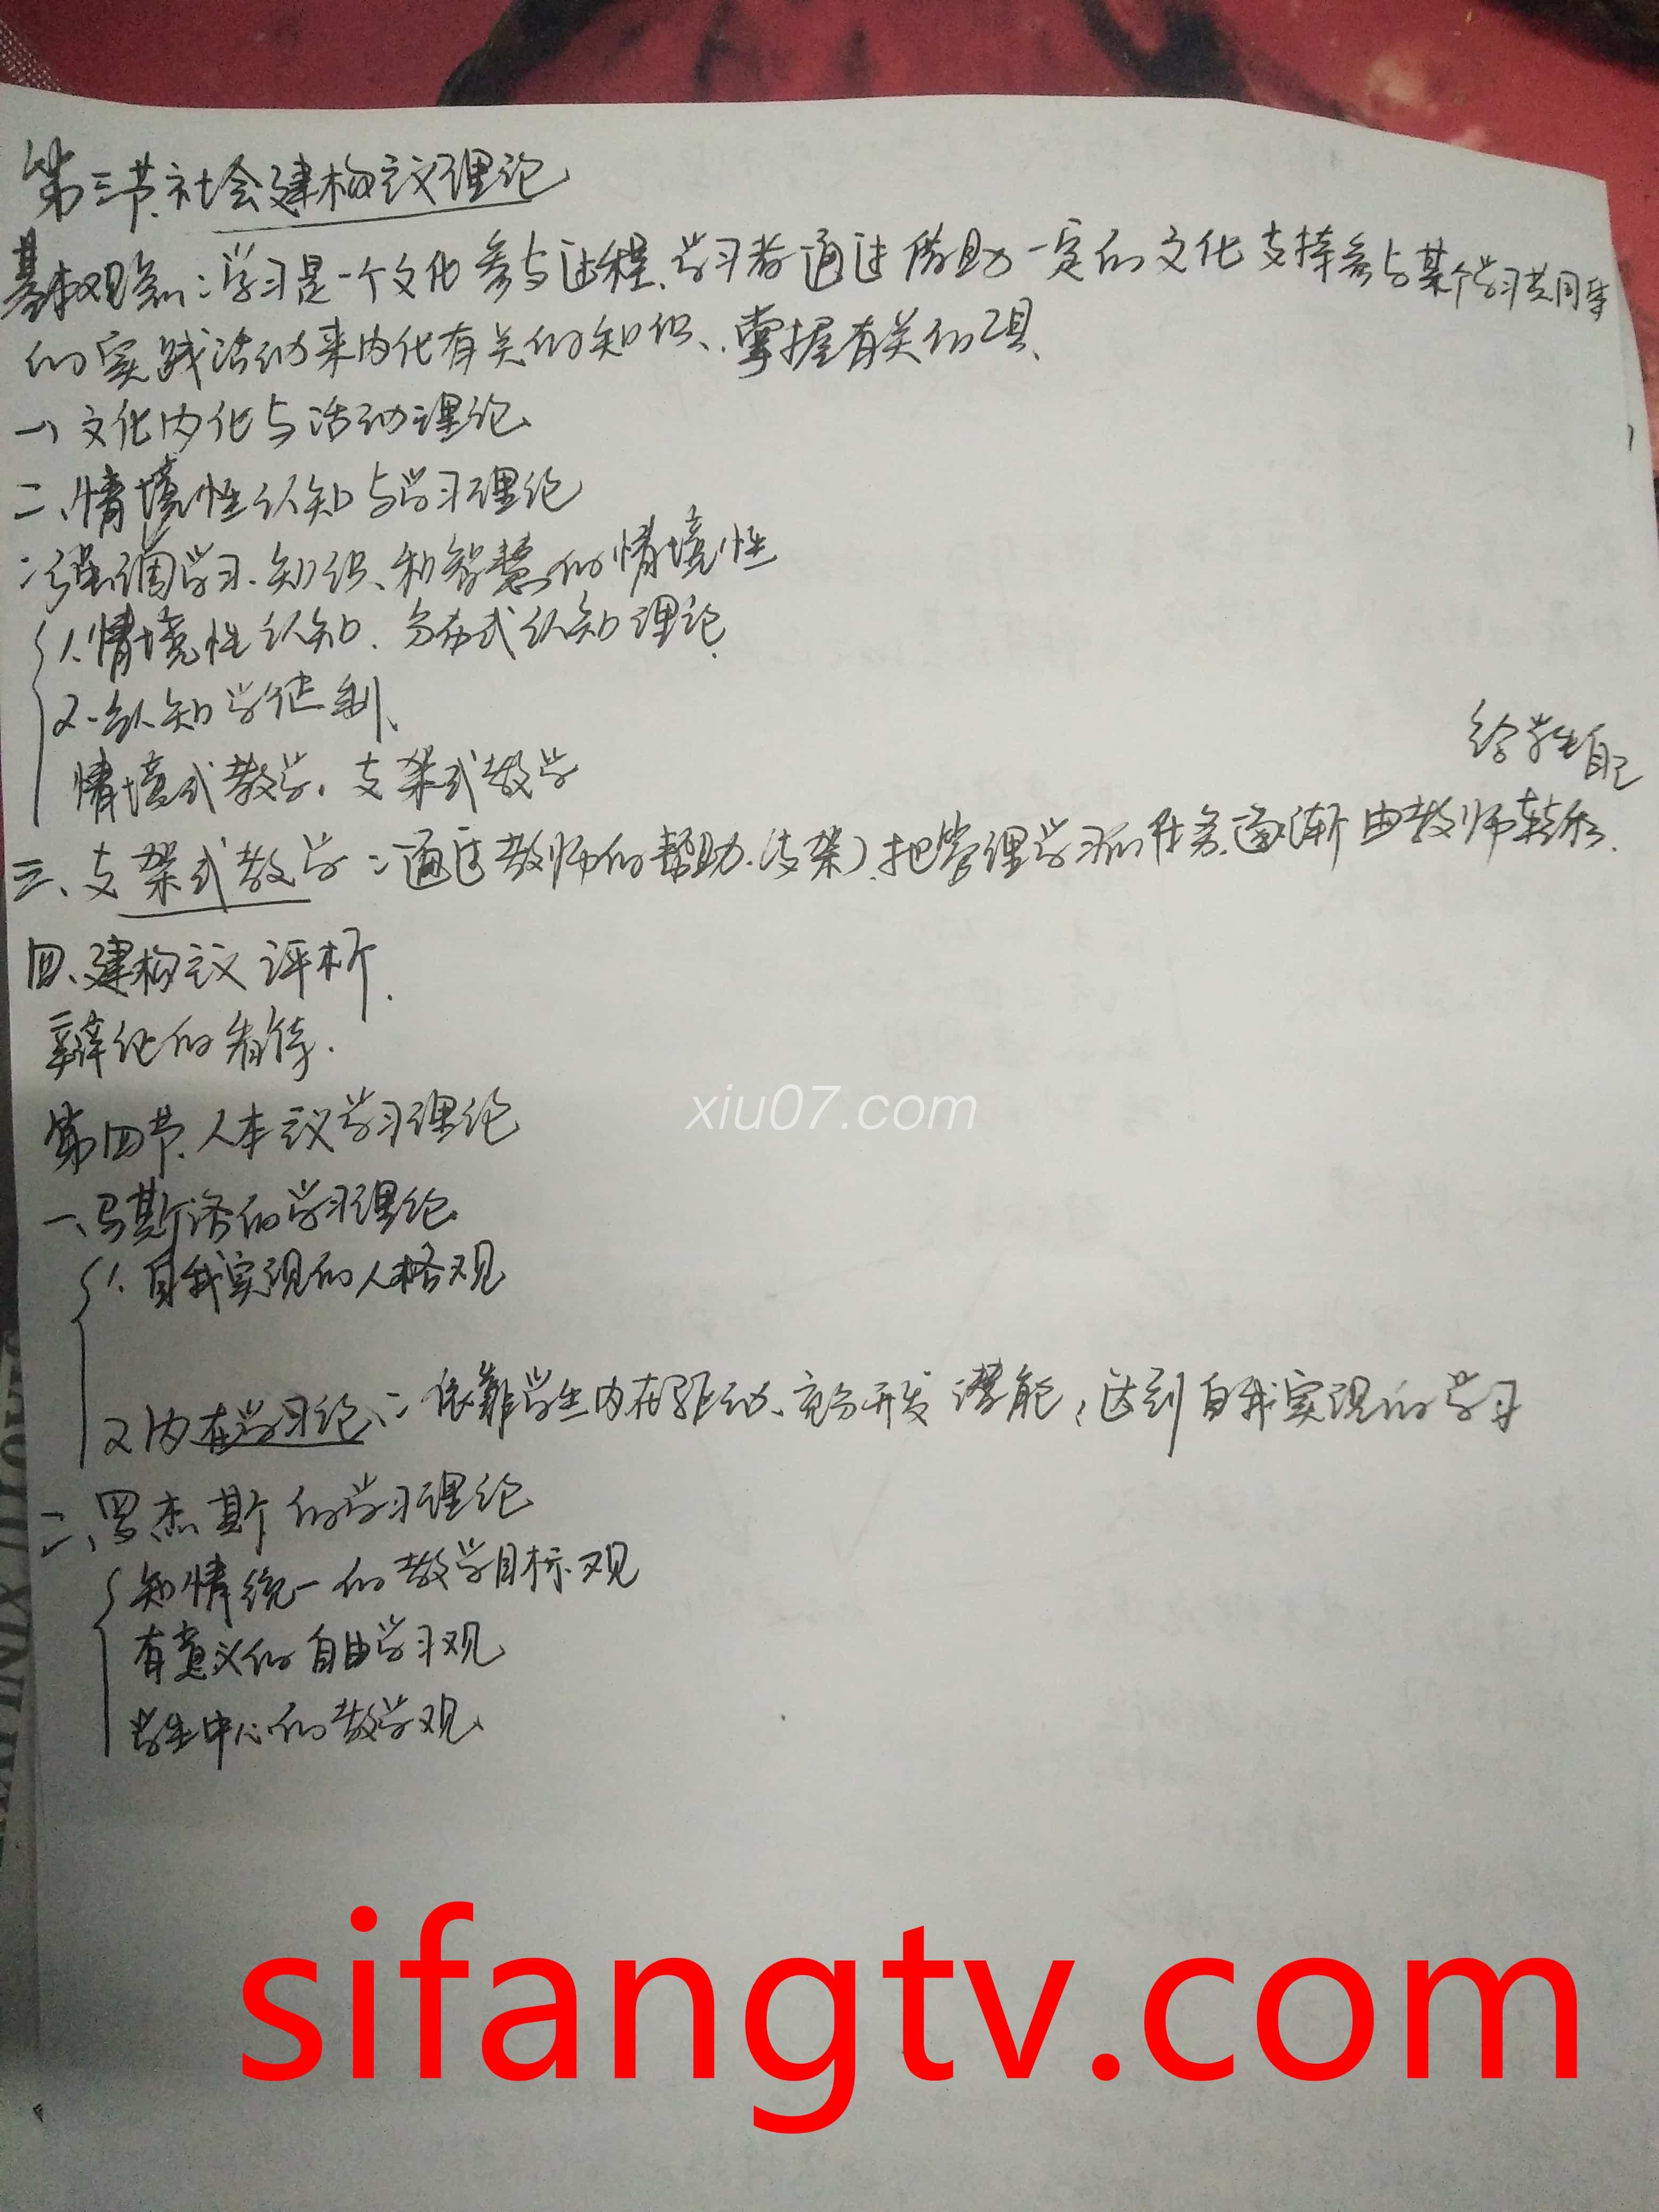 第三节、社会建构主义理论
基本观点:学习是一个文化参与过程、学习者通过借助一定的文化支持参与某个学习共同体
的实践活动来内化有关的知识、掌握有关的工具、
一、文化内化与活动理论、
二、情境性认知与学习理论
:强调学习、知识、和智慧的情境性
1.情境性认知、分布式认知理论、
2.认知学徒制、
情境式教学、支架式教学
给学生自己
三、支架式教学:通过教师的帮助(支架)、把管理学习的任务逐渐由教师转移、
四、建构主义评析、
辩证的看待.
第四节、人本主义学习理论
一、马斯洛的学习理论
1.自我实现的人格观
2内在学习论、:依靠学生内在驱动、充分开发潜能,达到自我实现的学习
二、罗杰斯的学习理论
知情统一的教学目标观
有意义的自由学习观
学生中心的教学观
xiu07.com
sifangtv.com